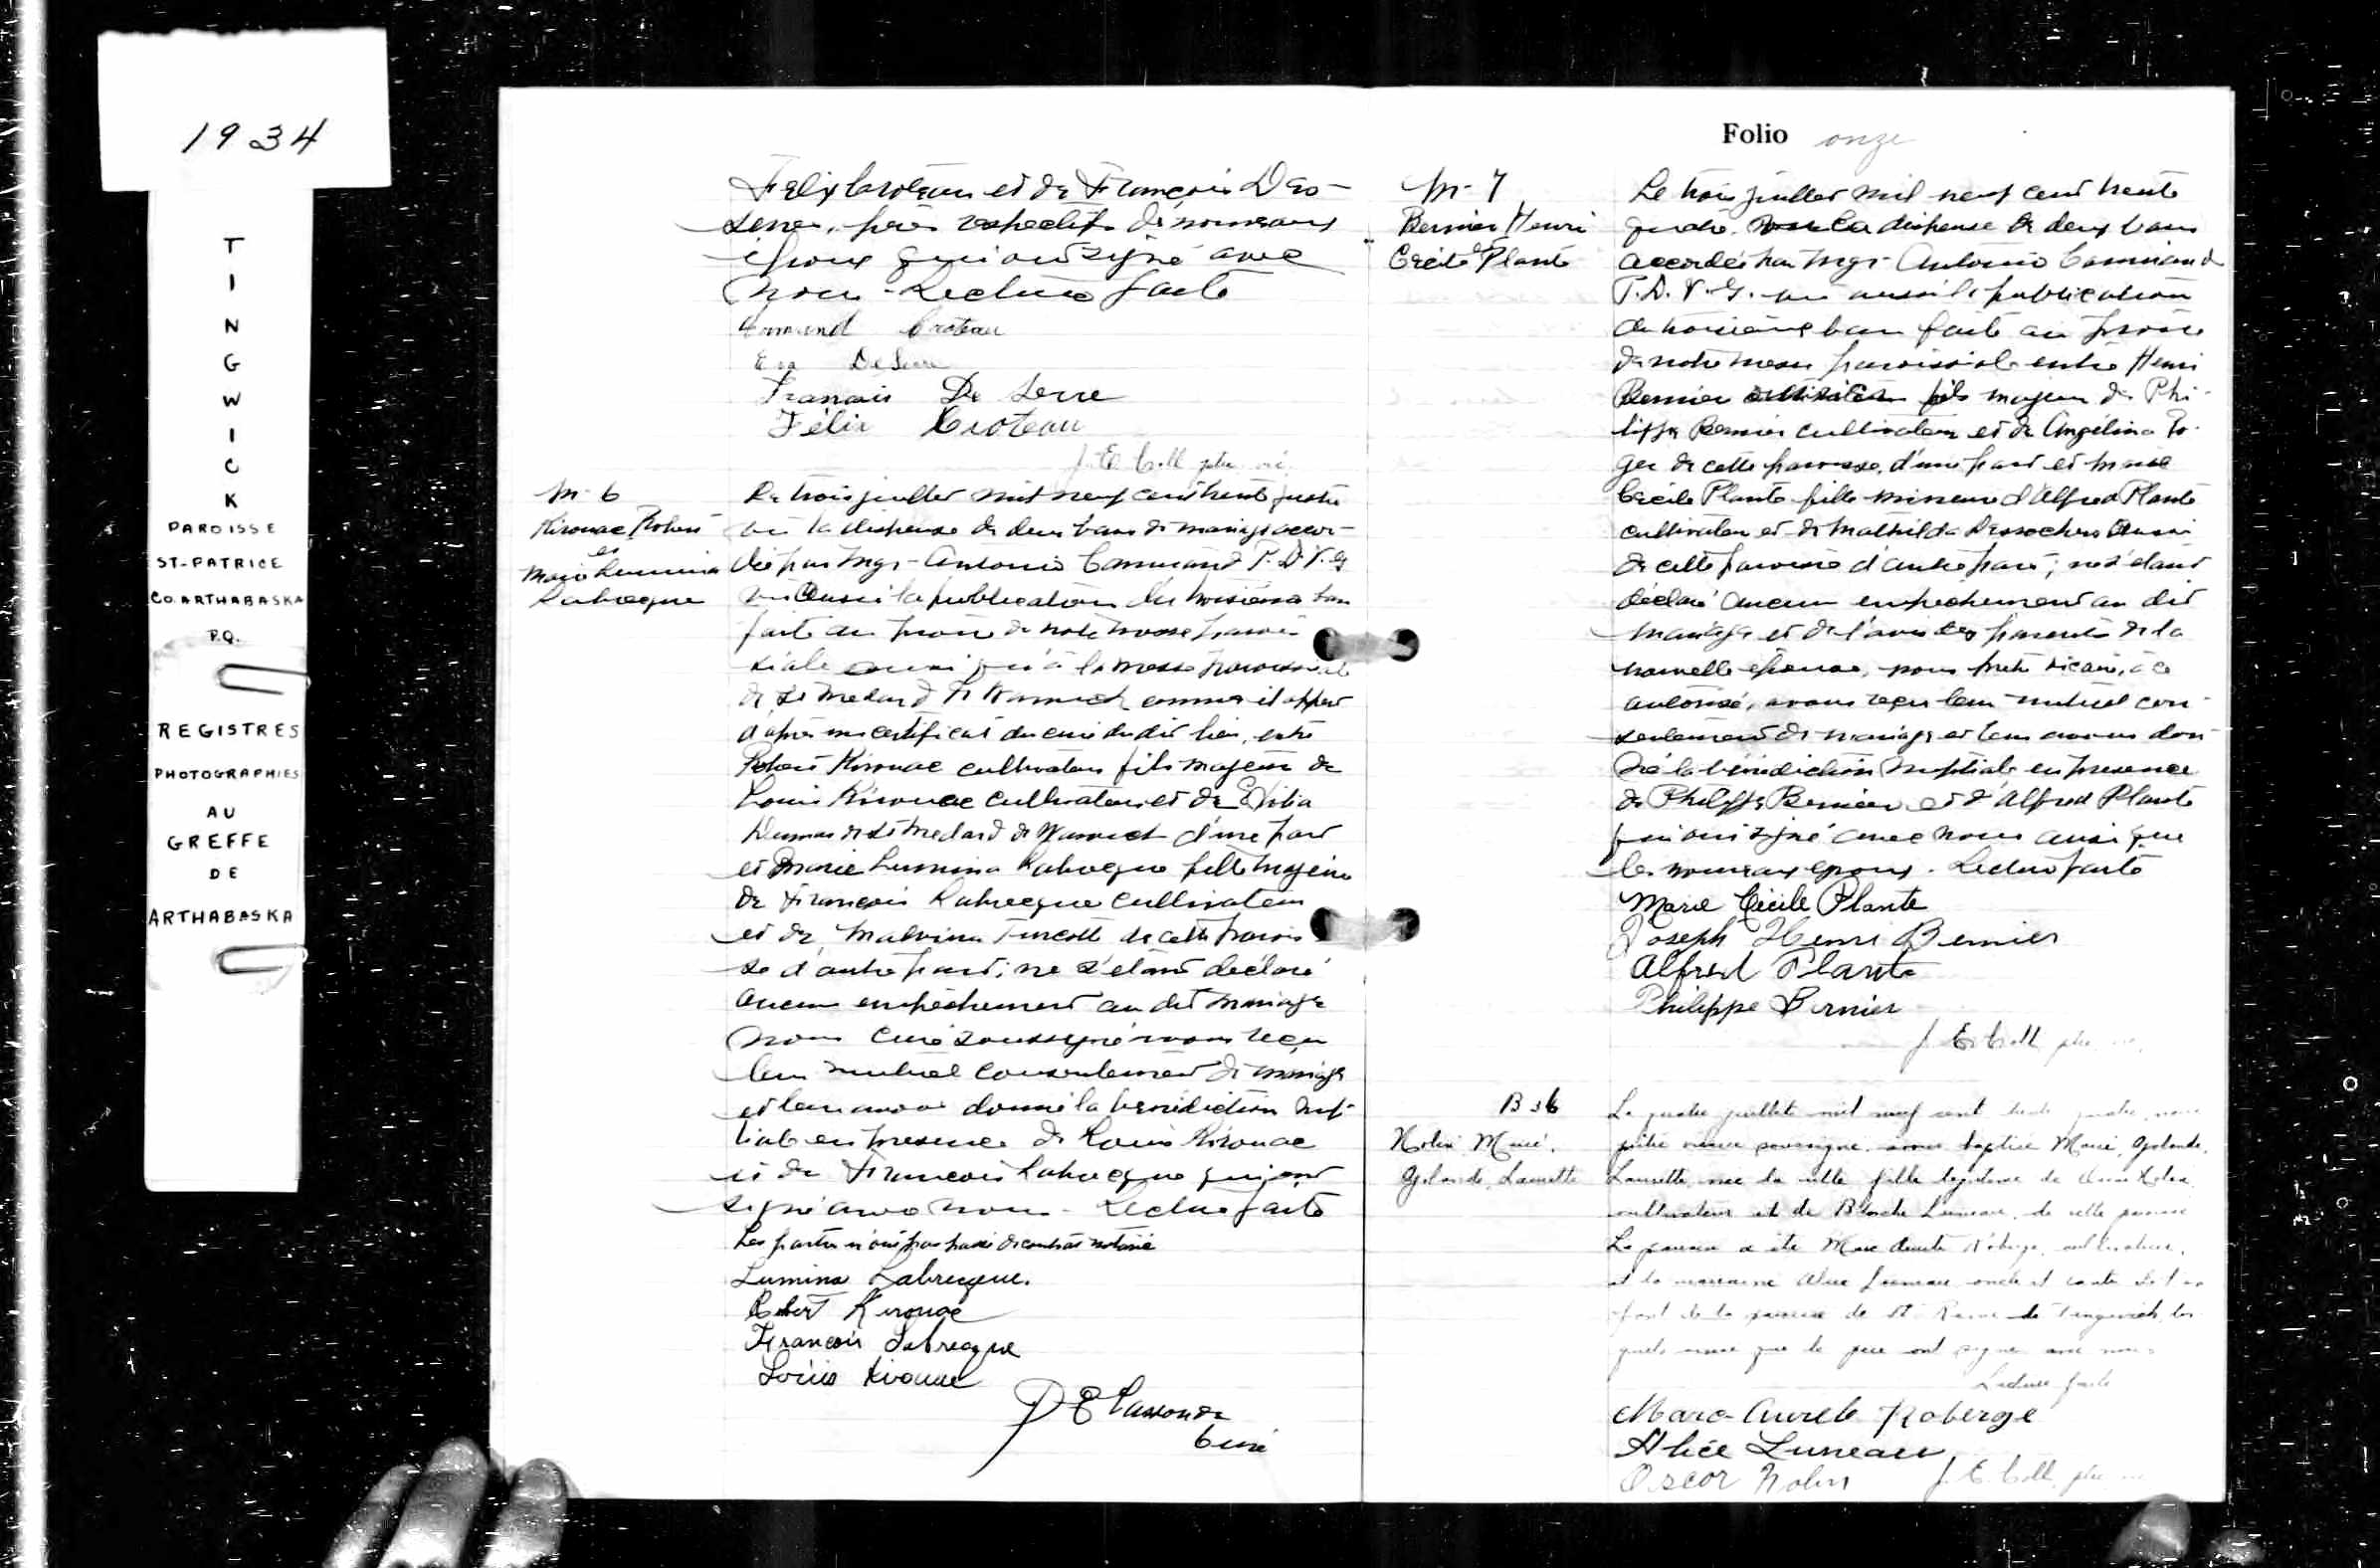 1934
TINGWICK
PAROISSE
ST-PATRICE
CO. ARTHABASKA
P.Q.
REGISTRES
PHOTOGRAPHIES
AU
GREFFE
DE
ARTHABASKA
Felix Croteau et de François Des-
serre, pères respectifs des nouveaux
époux qui ont signé avec
nous - Lecture faite
Edmond Croteau
Eva DeSerre
Francois De Serre
Félix Croteau
J. E. ptre vic.
M-6
Kirouac Robert
et
Marie Lumina
Labrecque
Le trois juillet mil neuf cent trente quatre
vu la dispense de deux bans de mariage accor-
dée par Mgr Antonio Camirand P.D.V.G
vu aussi la publication du troisième ban
faite au prône de notre messe parois-
siale ainsi qu'à la messe paroissiale
de St Medard de Warwick comme il appert
d'après un certificat du curé du dit lieu, entre
Robert Kirouac cultivateur fils majeur de
Louis Kirouac cultivateur et de
Dumas de St Medard de Warwick d'une part
et Marie Lumina Labrecque fille majeure
de François Labrecque cultivateur
et de Malvina Turcotte de cette parois-
se d'autre part; ne s'étant déclaré
aucun empêchement au dit mariage
nous curé soussigné avons reçu
leur mutuel consentement de mariage
et leur avons donné la bénédiction nup-
tiale en presence de Louis Kirouac
et de François Labrecque qui ont
signé avec nous - Lecture faite
Les parties n'ont pas passé de contrat notarié
Lumina Labrecque.
Robert Kirouac
François Labrecque
Louis Kirouac
P E Lassonde
Curé
Folio onze
M-7
Bernier Henri
Cécile Plante
Le trois juillet mil neuf cent trente
quatre, vu la dispense de deux bans
accordée par Mgr Antonio Camirand
P.D.V.G. vu aussi la publication
du troisième ban faite au prône
de notre messe paroissiale entre Henri
Bernier cultivateur fils majeur de Phi-
lippe Bernier cultivateur et de Angélina Ro-
ger de cette paroisse, d'une part et Marie
Cécile Plante fille mineure d'Alfred Plante
cultivateur et de Mathilda Desrochers aussi
de cette paroisse d'autre part; ne s'étant
déclaré aucun empêchement au dit
mariage et de l'avis des parents de la
nouvelle épouse, nous prêtre vicaire, à ce
autorisé, avons reçu leur mutuel con-
sentement de mariage et leur avons don-
né la bénédiction nuptiale en presence
de Philippe Bernier et d'Alfred Plante
qui ont signé avec nous ainsi que
les nouveaux epoux. Lecture faite
Marie Cécile Plante
Joseph Henri Bernier
Alfred Plante
Philippe Bernier
J. E. ptre
B 36
Nolin Marie
Yolande Laurette
Le quatre juillet mil neuf cent trente quatre, nous
prêtre vicaire soussigné avons baptisé Marie, Yolande,
Laurette née la veille fille légitime de Nolin
cultivateur et de Blanche Luneau, de cette paroisse
Le parrain a été Marc Aurèle Roberge, cultivateur,
et la marraine Alice Luneau oncle et tante de l'en-
fant de la paroisse de St de Tingwick, les-
quels ainsi que le père ont signé avec nous
Lecture faite
Marc-Aurele Roberge
Alice Luneau
Oscar Nolin
J. E. ptre